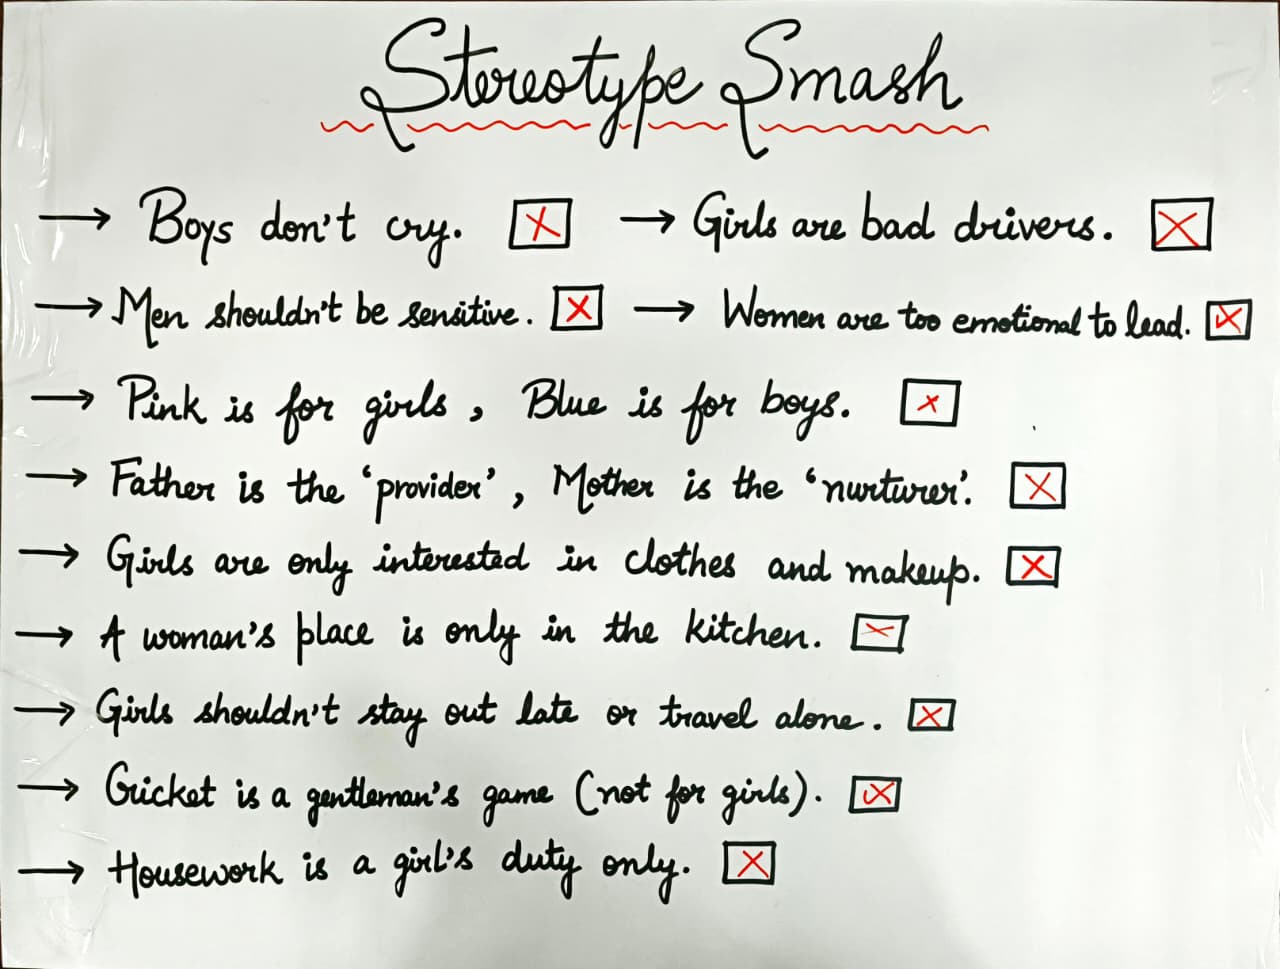 Stereotype Smash
→ Boys don't cry. ☒ → Girls are bad drivers. ☒
→ Men shouldn't be sensitive. ☒ → Women are too emotional to lead. ☒
→ Pink is for girls, Blue is for boys. ☒
→ Father is the 'provider', Mother is the 'nurturer'. ☒
→ Girls are only interested in clothes and makeup. ☒
→ A woman's place is only in the kitchen. ☒
→ Girls shouldn't stay out late or travel alone. ☒
→ Cricket is a gentleman's game (not for girls). ☒
→ Housework is a girl's duty only. ☒